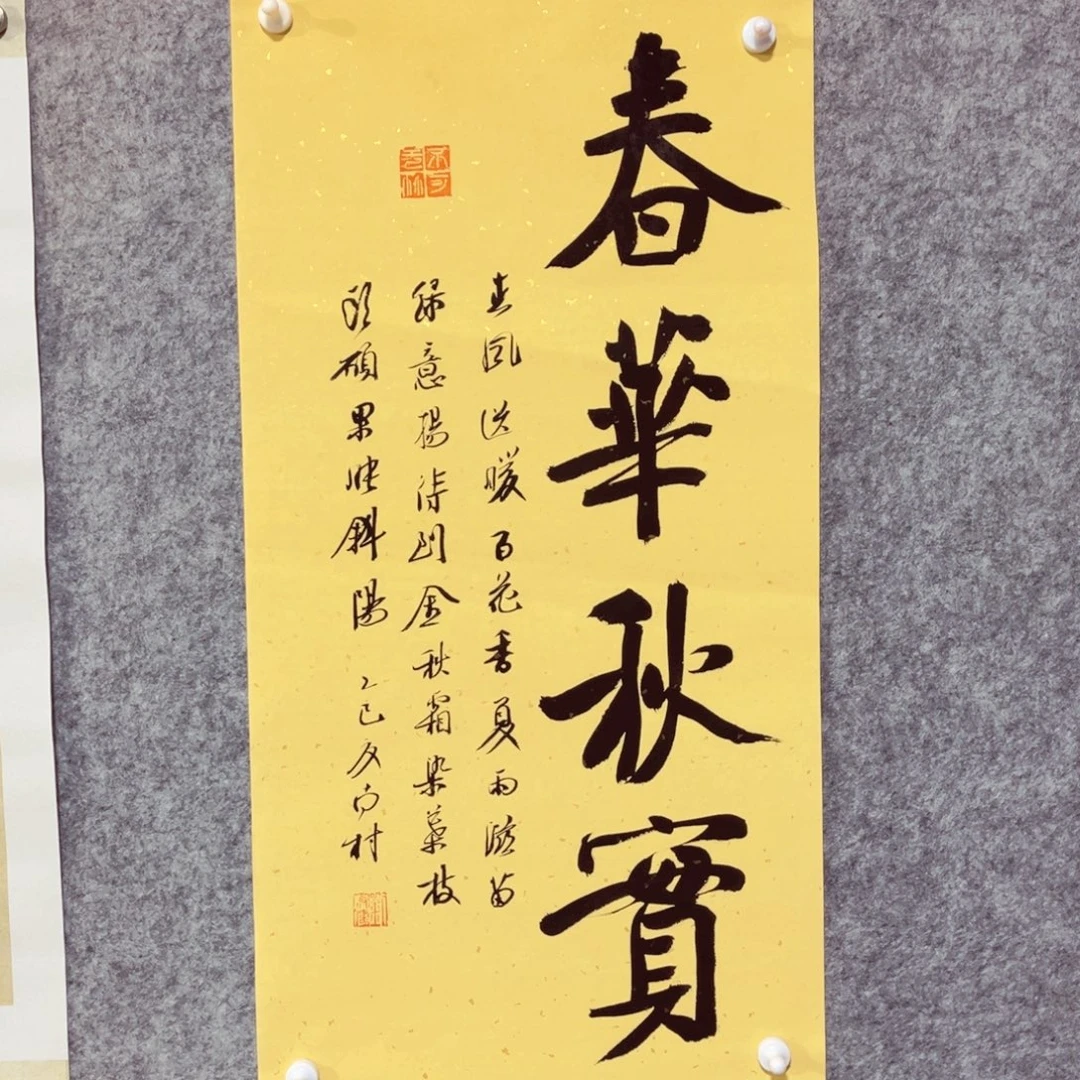 春華秋實
春风送暖百花香夏雨滋苗
绿意揚待到金秋霜染葉枝
头碩果映斜陽 乙巳夏向村